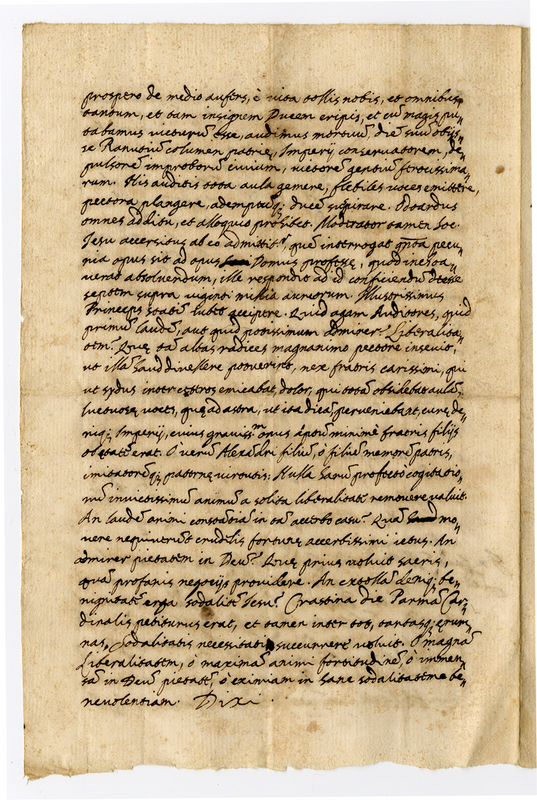 prospero de medio aufers, è vita tollis nobis, et omnibus
tantum, et tam insignem Ducem eripis, et cũ magis pu„
tabamus victurũ esse, audimus mortuũ diẽ suũ obijs„
se Ranutiũ columen patrię, Imperij conservatorem, de„
pulsorẽ improborũ civium, victorẽ gentiũ ferocissima„
rum. His auditis tota aula gemere, flebiles voces emittere,
pectora plangere, ademptũq; ducẽ suspirare. Odoardus
omnes aditu, et alloquio prohibet. Moderator tamen Soc.
Iesu accersitus ab eo admittitr, quẽ interrogat q̃nta pecu„
nia opus sit ad opus Domus professę, quod inchoa„
verat absolvendum, ille respondit ad id conficiendũ
septem supra viginti millia aureorum. Illustrissimus
Princeps statĩ iubet accipere. Quid agam Auditores, quid
primũ laudẽ, aut quid potissimum admirer? Liberalita„
tem? Quę tã altas radices magnanimo pectore insevit,
ut illã haud divellere potuerint, nex fratris carissimi, qui
ut sydus inter cęteros emicabat, dolor, qui totã obsidebat aulã,
luctuosę voces, quę ad astra, ut ita dicã perveniebant, curę de„
niq; Imperij, cuius gravissm onus aptũ minimè fratris filijs
ętati erat. O verũ Alexãdri filiũ, ò filiũ memorẽ patris,
imitatorẽq; paternę virtutis: Nulla harũ profecto cogitatio„
nũ invictissimũ animũ a solita liberalitate removere valuit.
An laudẽ animi constãtiã in tã acerbo casu? Quã mo„
vere nequiverũt crudelis fortunę acerbissimi ictus. An
admirer pietatem in Deũ? Quę prius voluit sacris,
quã profanis negocijs providere. An extollã deniq; be„
nignitatẽ erga sodalitẽ Iesu? Crastina die Parmã Car„
dinalis petiturus erat, et tamen inter tot, tantasq; ęrum„
nas, Sodalitatis necessitati succurrere voluit. O magnã
Liberalitatem, ò maximã animi fortitudinẽ, ò immen„
sã in Deũ pietatẽ, ò eximiam in hanc sodalitatem be„
nevolentiam. Dixi.